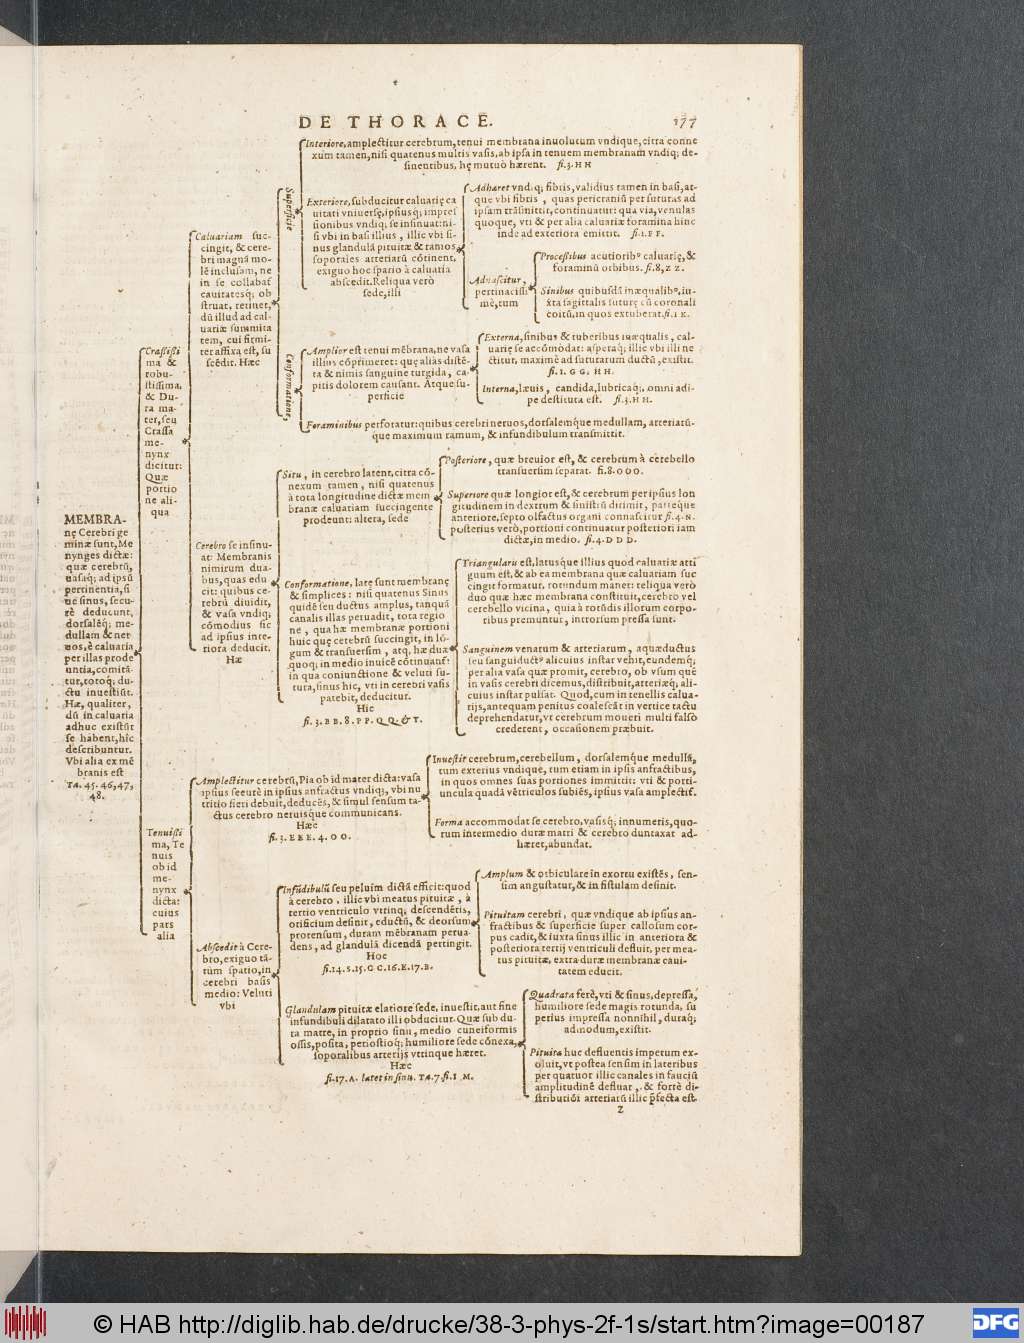 DE THORACE.
177
MEMBRA-
nę Cerebri ge
minæ sunt, Me
nynges dictæ:
quæ cerebrũ,
uasiq; ad ipsũ
pertinentia, si
ue sinus, secu-
rè deducunt,
dorsalẽq; me-
dullam & ner
uos, è caluaria
per illas prode
untia, comitã-
tur, totoq; du-
ctu inuestiũt.
Hæ, qualiter,
dũ in caluaria
adhuc existũt
se habent, hîc
describuntur.
Vbi alia ex mẽ
branis est
TA. 45. 46, 47,
48.
Crassissi
ma &
robu-
stissima,
& Du-
ra ma-
ter, seu
Crassa
me-
nynx
dicitur:
Quæ
portio
ne ali-
qua
Caluariam suc-
cingit, & cere-
bri magnã mo-
lẽ inclusam, ne
in se collabas
cauitatesq; ob
struat, retinet,
dũ illud ad cal-
uariæ summita
tem, cui firmi-
ter affixa est, su
scẽdit. Hæc
Superficie
Interiore, amplectitur cerebrum, tenui membrana inuolutum vndique, citra conne
xum tamen, nisi quatenus multis vasis, ab ipsa in tenuem membranam vndiq; de-
sinentibus, hę mutuò hærent. fi. 3. H H
Exteriore, subducitur caluarię ca
uitati vniuersę, ipsiusq; impres
sionibus vndiq; se insinuat: ni-
si vbi in basi illius, illic vbi si-
nus glandulã pituitæ & ramos
soporales arteriarũ cõtinent,
exiguo hoc spatio à caluaria
abscedit. Reliqua verò
sede, illi
Adhæret vndiq; fibris, validius tamen in basi, at-
que vbi fibris, quas pericraniũ per suturas ad
ipsam trãsmittit, continuatur: qua via, venulas
quoque, vti & per alia caluariæ foramina hinc
inde ad exteriora emittit. fi. 1. F F.
Adnascitur,
pertinacissi
mè, tum
Processibus acutioribꝰ caluarię, &
foraminũ orbibus. fi. 8, Z Z.
Sinibus quibusdã inæqualibꝰ, iu-
xta sagittalis suturę cũ coronali
coitũ, in quos extuberat. fi. 1 K.
Conformatione,
Amplior est tenui mẽbrana, ne vasa
illius cõprimeret: quę aliàs distẽ-
ta & nimis sanguine turgida, ca-
pitis dolorem causant. Atque su-
perficie
Externa, sinibus & tuberibus inæqualis, cal-
uarię se accõmodat: asperaq; illic vbi illi ne
ctitur, maximè ad suturarum ductũ, existit.
fi. 1. G G. H H.
Interna, læuis, candida, lubricaq;, omni adi-
pe destituta est. fi. 3. H H.
Foraminibus perforatur: quibus cerebri neruos, dorsalemq́ue medullam, arteriarũ-
que maximum ramum, & infundibulum transmittit.
Cerebro se insinu-
at: Membranis
nimirum dua-
bus, quas edu
cit: quibus ce-
rebrũ diuidit,
& vasa vndiq;
cõmodius sic
ad ipsius inte-
riora deducit.
Hæ
Situ, in cerebro latent, citra cõ-
nexum tamen, nisi quatenus
à tota longitudine dictæ mem
branæ caluariam succingente
prodeunt: altera, sede
Posteriore, quæ breuior est, & cerebrum à cerebello
transuersim separat. fi. 8. O O O.
Superiore quæ longior est, & cerebrum per ipsius lon
gitudinem in dextrum & sinistrũ dirimit, parteque
anteriore, septo olfactus organi connascitur fi. 4. N.
posterius verò, portioni continuatur posteriori iam
dictæ, in medio. fi. 4. D D D.
Conformatione, latę sunt membranę
& simplices: nisi quatenus Sinus
quidẽ seu ductus amplus, tanquã
canalis illas peruadit, tota regio
ne, qua hæ membranæ portioni
huic quę cerebrũ succingit, in lõ-
gum & transuersim, atq. hæ duæ
quoq; in medio inuicẽ cõtinuant:
in qua coniunctione & veluti su-
tura, sinus hic, vti in cerebri vasis
patebit, deducitur.
Hic
fi. 3. B B. 8. P P. Q Q. & T.
Triangularis est, latusq́ue illius quod caluariæ atti
guum est, & ab ea membrana quæ caluariam suc
cingit formatur, rotundum manet: reliqua verò
duo quæ hæc membrana constituit, cerebro vel
cerebello vicina, quia à rotũdis illorum corpo-
ribus premuntur, introrsum pressa sunt.
Sanguinem venarum & arteriarum, aquæductus
seu sanguiductꝰ alicuius instar vehit, eundemq;
per alia vasa quæ promit, cerebro, ob vsum quẽ
in vasis cerebri dicemus, distribuit, arteriæq́; ali-
cuius instar pulsat. Quod, cum in tenellis calua-
rijs, antequam penitus coalescãt in vertice tactu
deprehendatur, vt cerebrum moueri multi falsò
crederent, occasionem præbuit.
Tenuissi
ma, Te
nuis
ob id
me-
nynx
dicta:
cuius
pars
alia
Amplectitur cerebrũ, Pia ob id mater dicta: vasa
ipsius securè in ipsius anfractus vndiq;, vbi nu
tritio fieri debuit, deducẽs, & simul sensum ta-
ctus cerebro neruisque communicans.
Hæc
fi. 3. E E E. 4. O O.
Inuestit cerebrum, cerebellum, dorsalemq́ue medullã,
tum exterius vndique, tum etiam in ipsis anfractibus,
in quos omnes suas portiones immittit: vti & porti-
uncula quadã vẽtriculos subiẽs, ipsius vasa amplectit̃.
Forma accommodat se cerebro, vasisq; innumeris, quo-
rum intermedio duræ matri & cerebro duntaxat ad-
hæret, abundat.
Abscedit à Cere-
bro, exiguo tã-
tùm spatio, in
cerebri basis
medio: Veluti
vbi
Infũdibulũ seu peluim dictã efficit: quod
à cerebro, illic vbi meatus pituitæ, à
tertio ventriculo vtrinq; descendẽtis,
orificium desinit, eductũ, & deorsum
protensum, duram mẽbranam perua-
dens, ad glandulã dicendã pertingit.
Hoc
fi. 14. S. 15. C C. 16. E. 17. B.
Amplum & orbiculare in exortu existẽs, sen-
sim angustatur, & in fistulam desinit.
Pituitam cerebri, quæ vndique ab ipsius an-
fractibus & superficie super callosum cor-
pus cadit, & iuxta sinus illic in anteriora &
posteriora tertij ventriculi defluit, per mea-
tus pituitæ, extra duræ membranæ caui-
tatem educit.
Glandulam pituitæ elatiore sede, inuestit, aut fine
infundibuli dilatato illi obducitur. Quæ sub du-
ra matre, in proprio sinu, medio cuneiformis
ossis, posita, periostioq; humiliore sede cõnexa,
soporalibus arterijs vtrinque hæret.
Hæc
fi. 17. A. latet in sinu. TA. 7. fi. 1 M.
Quadrata ferè, vti & sinus, depressa,
humiliore sede magis rotunda, su
perius impressa nonnihil, duraq;
admodum, existit.
Pituitæ huc defluentis impetum ex-
oluit, vt postea sensim in lateribus
per quatuor illic canales in fauciũ
amplitudinẽ defluat, & fortè di-
stributiõi arteriarũ illic p̃fecta est.
Z
© HAB http://diglib.hab.de/drucke/38-3-phys-2f-1s/start.htm?image=00187
DFG